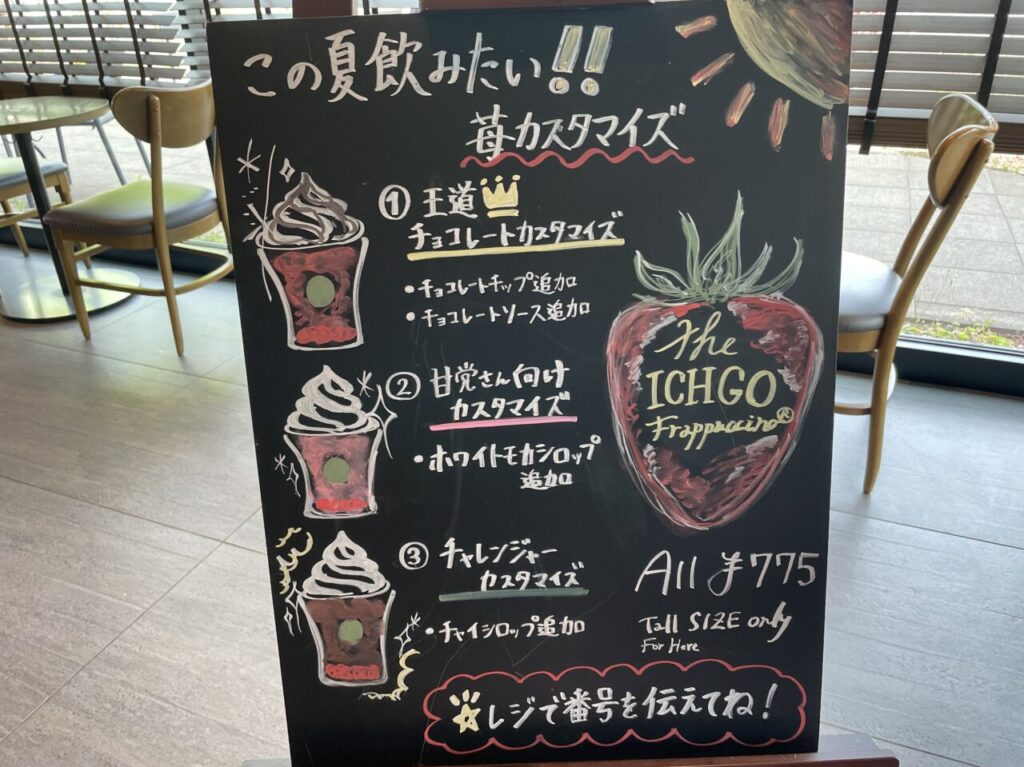 この夏飲みたい!!
苺カスタマイズ
① 王道
チョコレートカスタマイズ
・チョコレートチップ追加
・チョコレートソース追加
② 甘党さん向け
カスタマイズ
・ホワイトモカシロップ
追加
③ チャレンジャー
カスタマイズ
・チャイシロップ追加
The
ICHGO
Frappuccino®
All ¥775
Tall SIZE only
For Here
☆レジで番号を伝えてね!